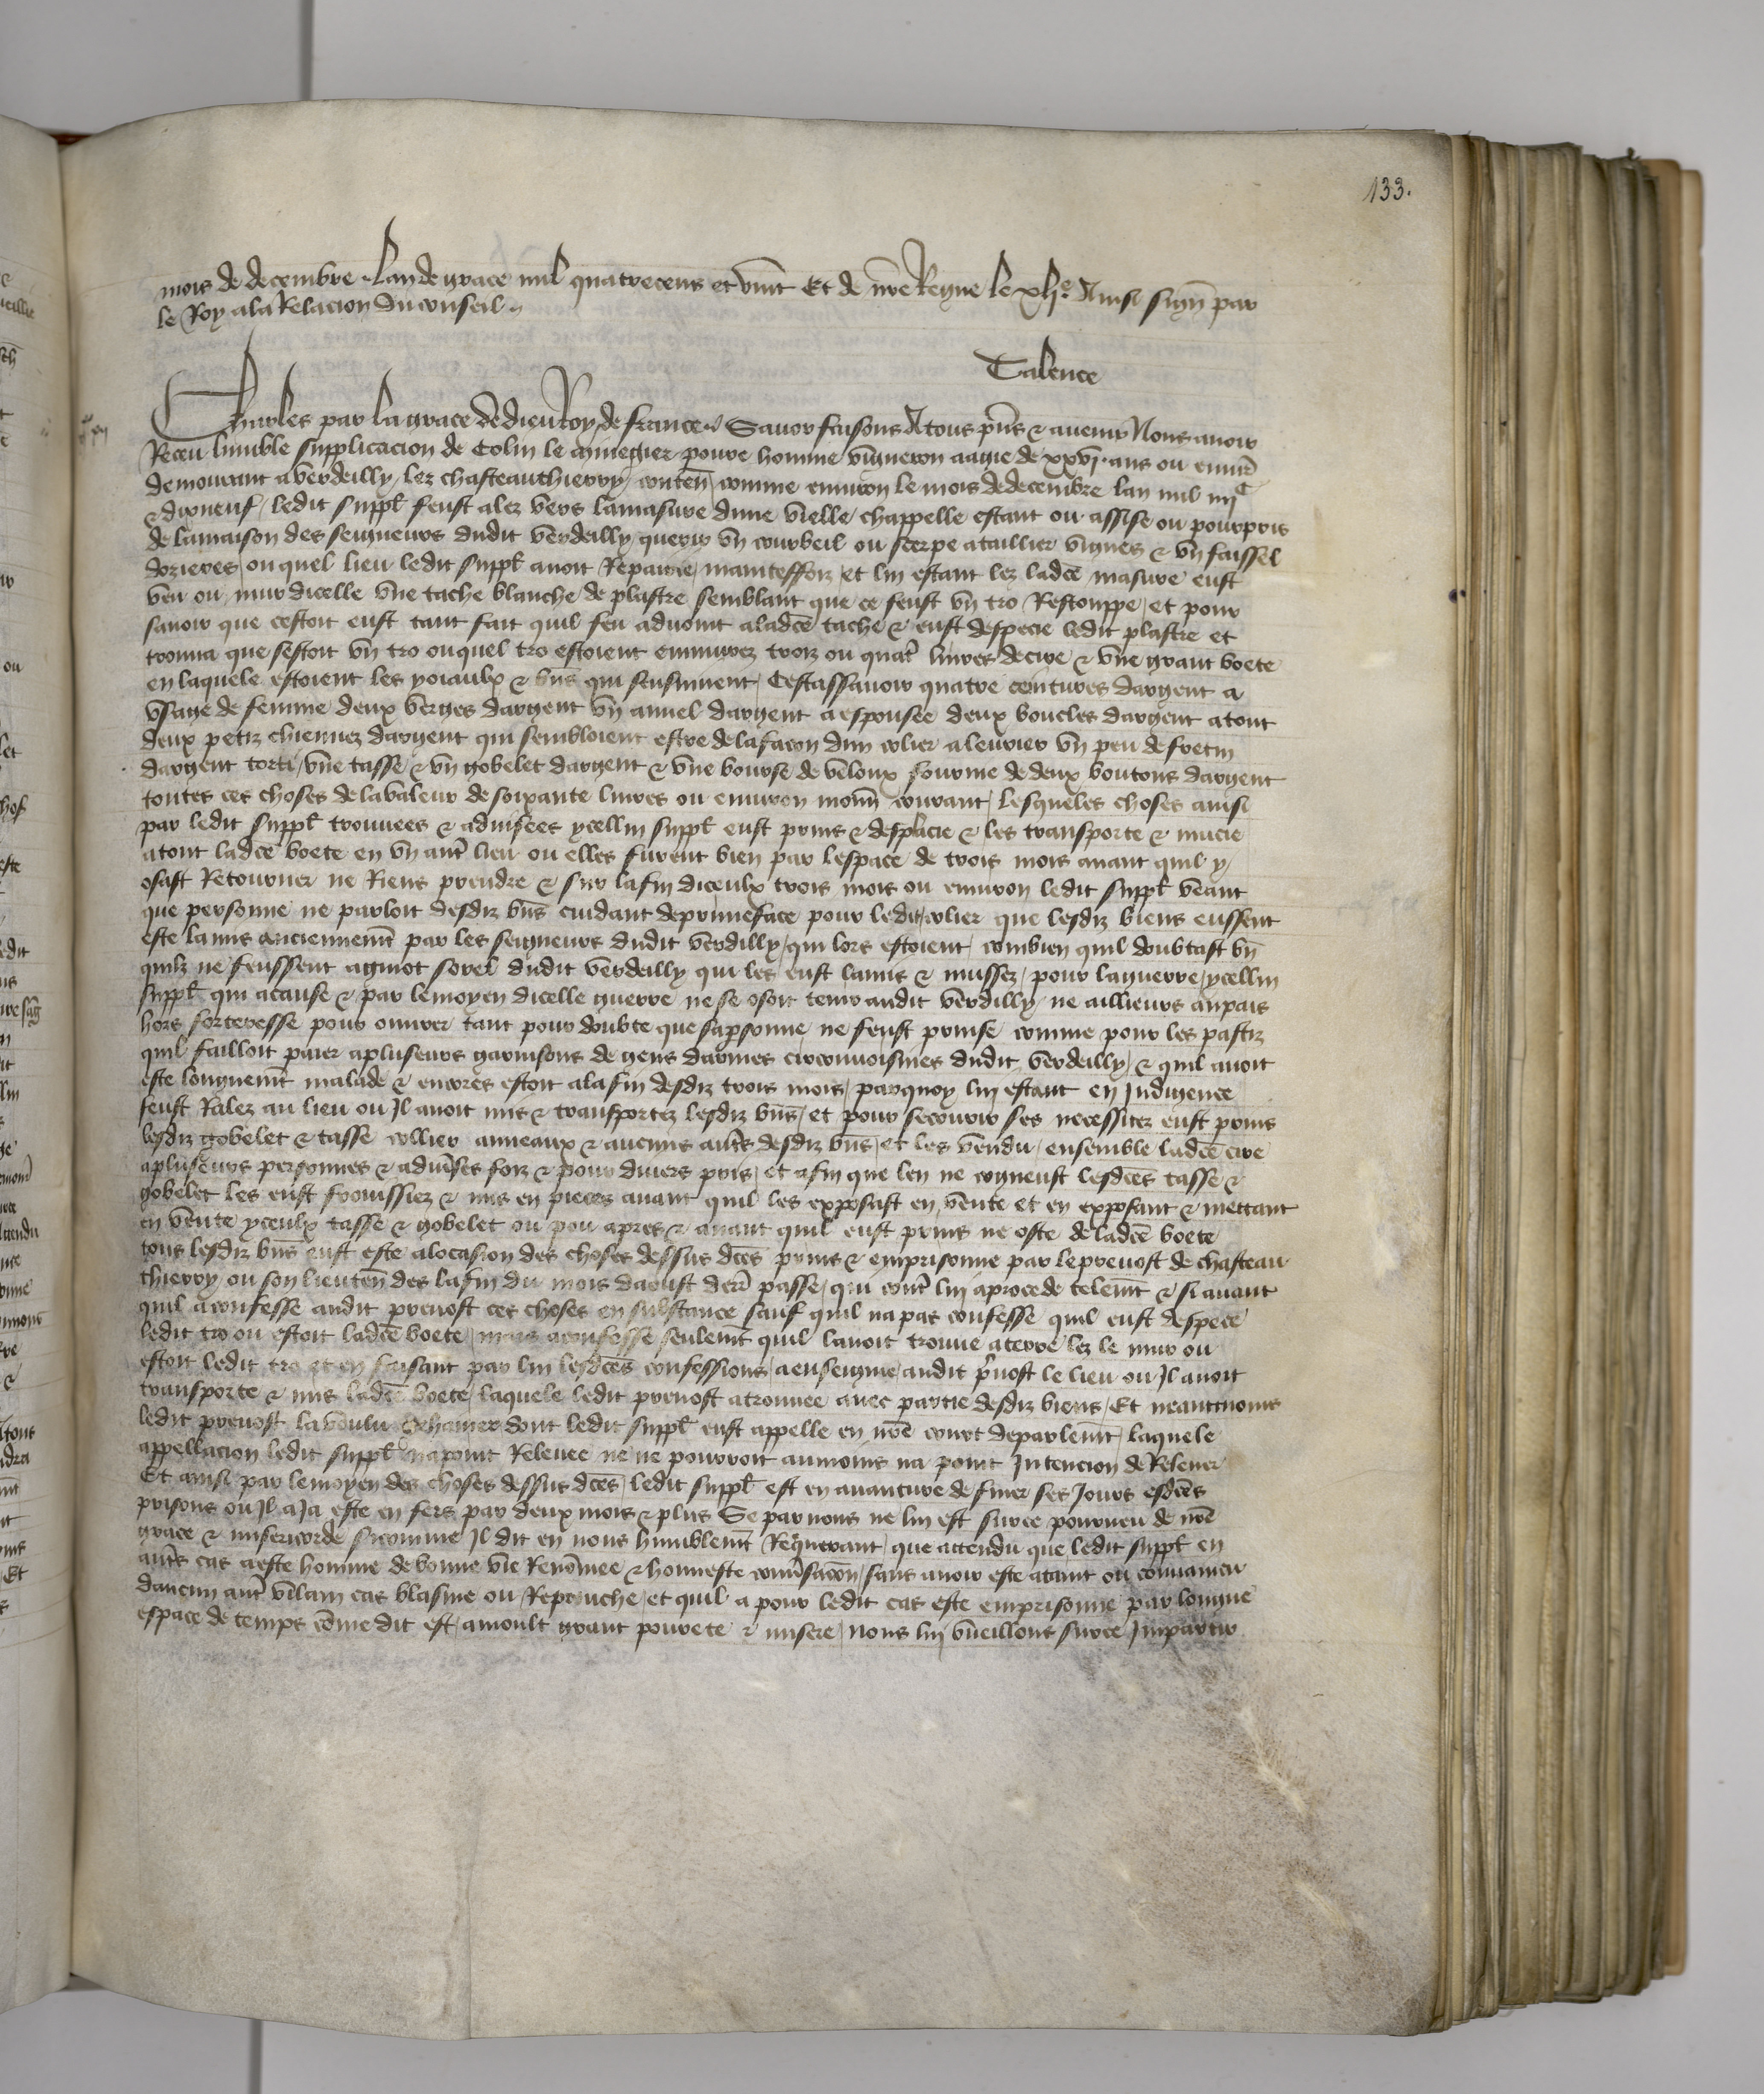 133.
mois de decembre Lan de grace mil quatrecens et vint Et de nre Regne le xlie Ainsi signe par
le Roy a la Relacion du conseil
Talence
Charles par la grace de dieu Roy de france Savoir faisons A tous pns & avenir Nous avoir
Receu lumble supplicacion de Colin le povre homme vigneron aagie de xxvj ans ou environ
demourant a verdeilly lez chasteauthierry conten comme environ le mois de decembre lan mil iiijC
& dixneuf ledit suppl feust alez vers la masure dune vielle chappelle estant ou assise ou pourpris
de la maison des seigneurs dudit verdeilly querir vn courbeil ou serpe a taillier vignes & vn faissel
dozieres ou quel lieu ledit suppl avoit Repairie maintesfoiz et lui estant lez ladce masure eust
veu ou mur dicelle vne tache blanche de plastre semblant que ce feust vn tro Restouppe et pour
savoir que cestoit eust tant fait quil feu advenit a ladce tache & eust despecie ledit plastre et
trouva que sestoit vn tro ouquel tro estoient emmurez troiz ou quatr livres de cire & vne grant boete
en laquele estoient les yoiaulx & bns qui sensuivent Cestassavoir quatre ceintures dargent a
vsage de femme deux verges dargent vn annel dargent a espousee deux boucles dargent atout
deux petiz chiennez dargent qui sembloient estre de la facon dun colier a levrier vn peu de fretin
dargent torti vne tasse & vn gobelet dargent & vne bourse de veloux fournie de deux boutons dargent
toutes ces choses de la valeur de soixante livres ou environ monn courant Lesqueles choses ainsi
par ledit suppl trouvees & advisees ycellui suppl eust prins & desplacie & les transporte & mucie
atout ladce boete en vn autr lieu ou elles furent bien par lespace de trois mois avant quil y
osast Retourner ne Riens prendre & sur la fin diceulx trois mois ou environ ledit suppl veant
que personne ne parloit desdiz bns cuidant de primeface pour ledit colier que lesdiz biens eussent
este la mis anciennemt par les seigneurs dudit verdilly qui lors estoient combien quil doubtast bn
quilz ne feussent a guiot sorel dudit verdeilly qui les eust la mis & mussez pour la guerre ycellui
suppl qui a cause & par le moyen dicelle guerre ne se osoit tenir audit verdilly ne aillieurs au pais
hors forteresse pour ouvrer tant pour doubte que sa psonne ne feust prinse comme pour les pastiz
quil failloit paier a pluseurs garnisons de gens darmes circonvoisines dudit verdeilly & quil avoit
este longuemt malade & encores estoit a la fin desdiz trois mois parquoy lui estant en Indigence
feust Ralez au lieu ou Il avoit mis & transportez lesdiz bns et pour secourir ses necessitez eust prins
lesdiz gobelet & tasse collier anneaux & aucuns autrs desdiz bns et les vendu ensemble ladce cire
a pluseurs personnes & a diverses foiz & pour divers pris et afin que len ne cogneust lesdces tasse &
gobelet les eust froissiez & mis en pieces avant quil les exposast en vente et en exposant & mettant
en vente yceulx tasse & gobelet ou pou apres & avant quil eust prins ne oste de ladce boete
tous lesdiz bns eust este a locasion des choses dessus dces prins & emprisonne par le prevost de chasteau
thierry ou son lieuten des la fin du mois daoust derr passe qui contr lui a procede telemt & si avant
quil a confesse audit prevost ces choses en substance sauf quil na pas confesse quil eust despecé
ledit tro ou estoit ladce boete mais a confesse seulemt quil lavoit trouve a terre lez le mur ou
estoit ledit tro et en faisant par lui lesdces confessions a enseigne audit pvost le lieu ou Il avoit
transporte & mis ladce boete laquele ledit prevost a trouvee avec partie desdiz biens Et neantmoins
ledit prevost la voulu dont ledit suppl eust appelle en nre court de parlemt laquele
appellacion ledit suppl na point Relevee ne ne pourroit aumoins na point Intencion de Relever
Et ainsi par le moyen des choses dessus dces ledit suppl est en avanture de finer ses Jours esdces
prisons ou Il a Ja este en fers par deux mois & plus Se par nous ne lui est sur ce pourveu de nre
grace & misericorde sicomme Il dit en nous humblemt Requerant que attendu que ledit suppl en
autrs cas a este homme de bonne vie Renommee & honneste conversacon sans avoir este ataint ou convaincu
daucun autr vilain cas blasme ou Reprouche et quil a pour ledit cas este emprisonne par longue
espace de temps come dit est a moult grant povrete & misere nous lui vueillons sur ce Impartir